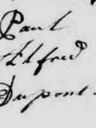 Paul
Alfred
Dupont.